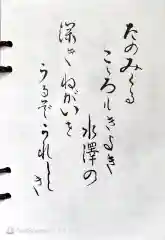 たのみくる
こゝろ きよき
水澤の
深きねがいを
うるぞうれし
き